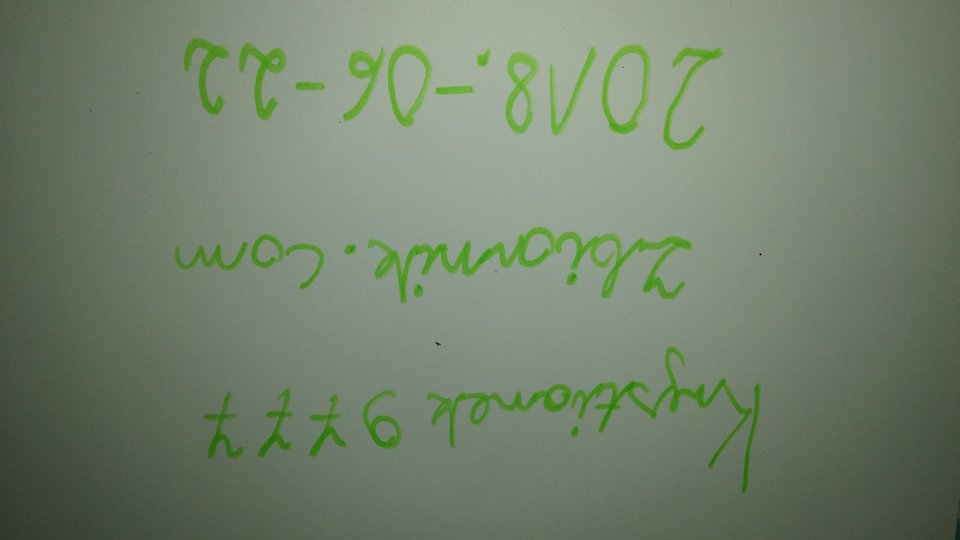 Krystianek 9777
Zbiornik.com
2018.-06-22